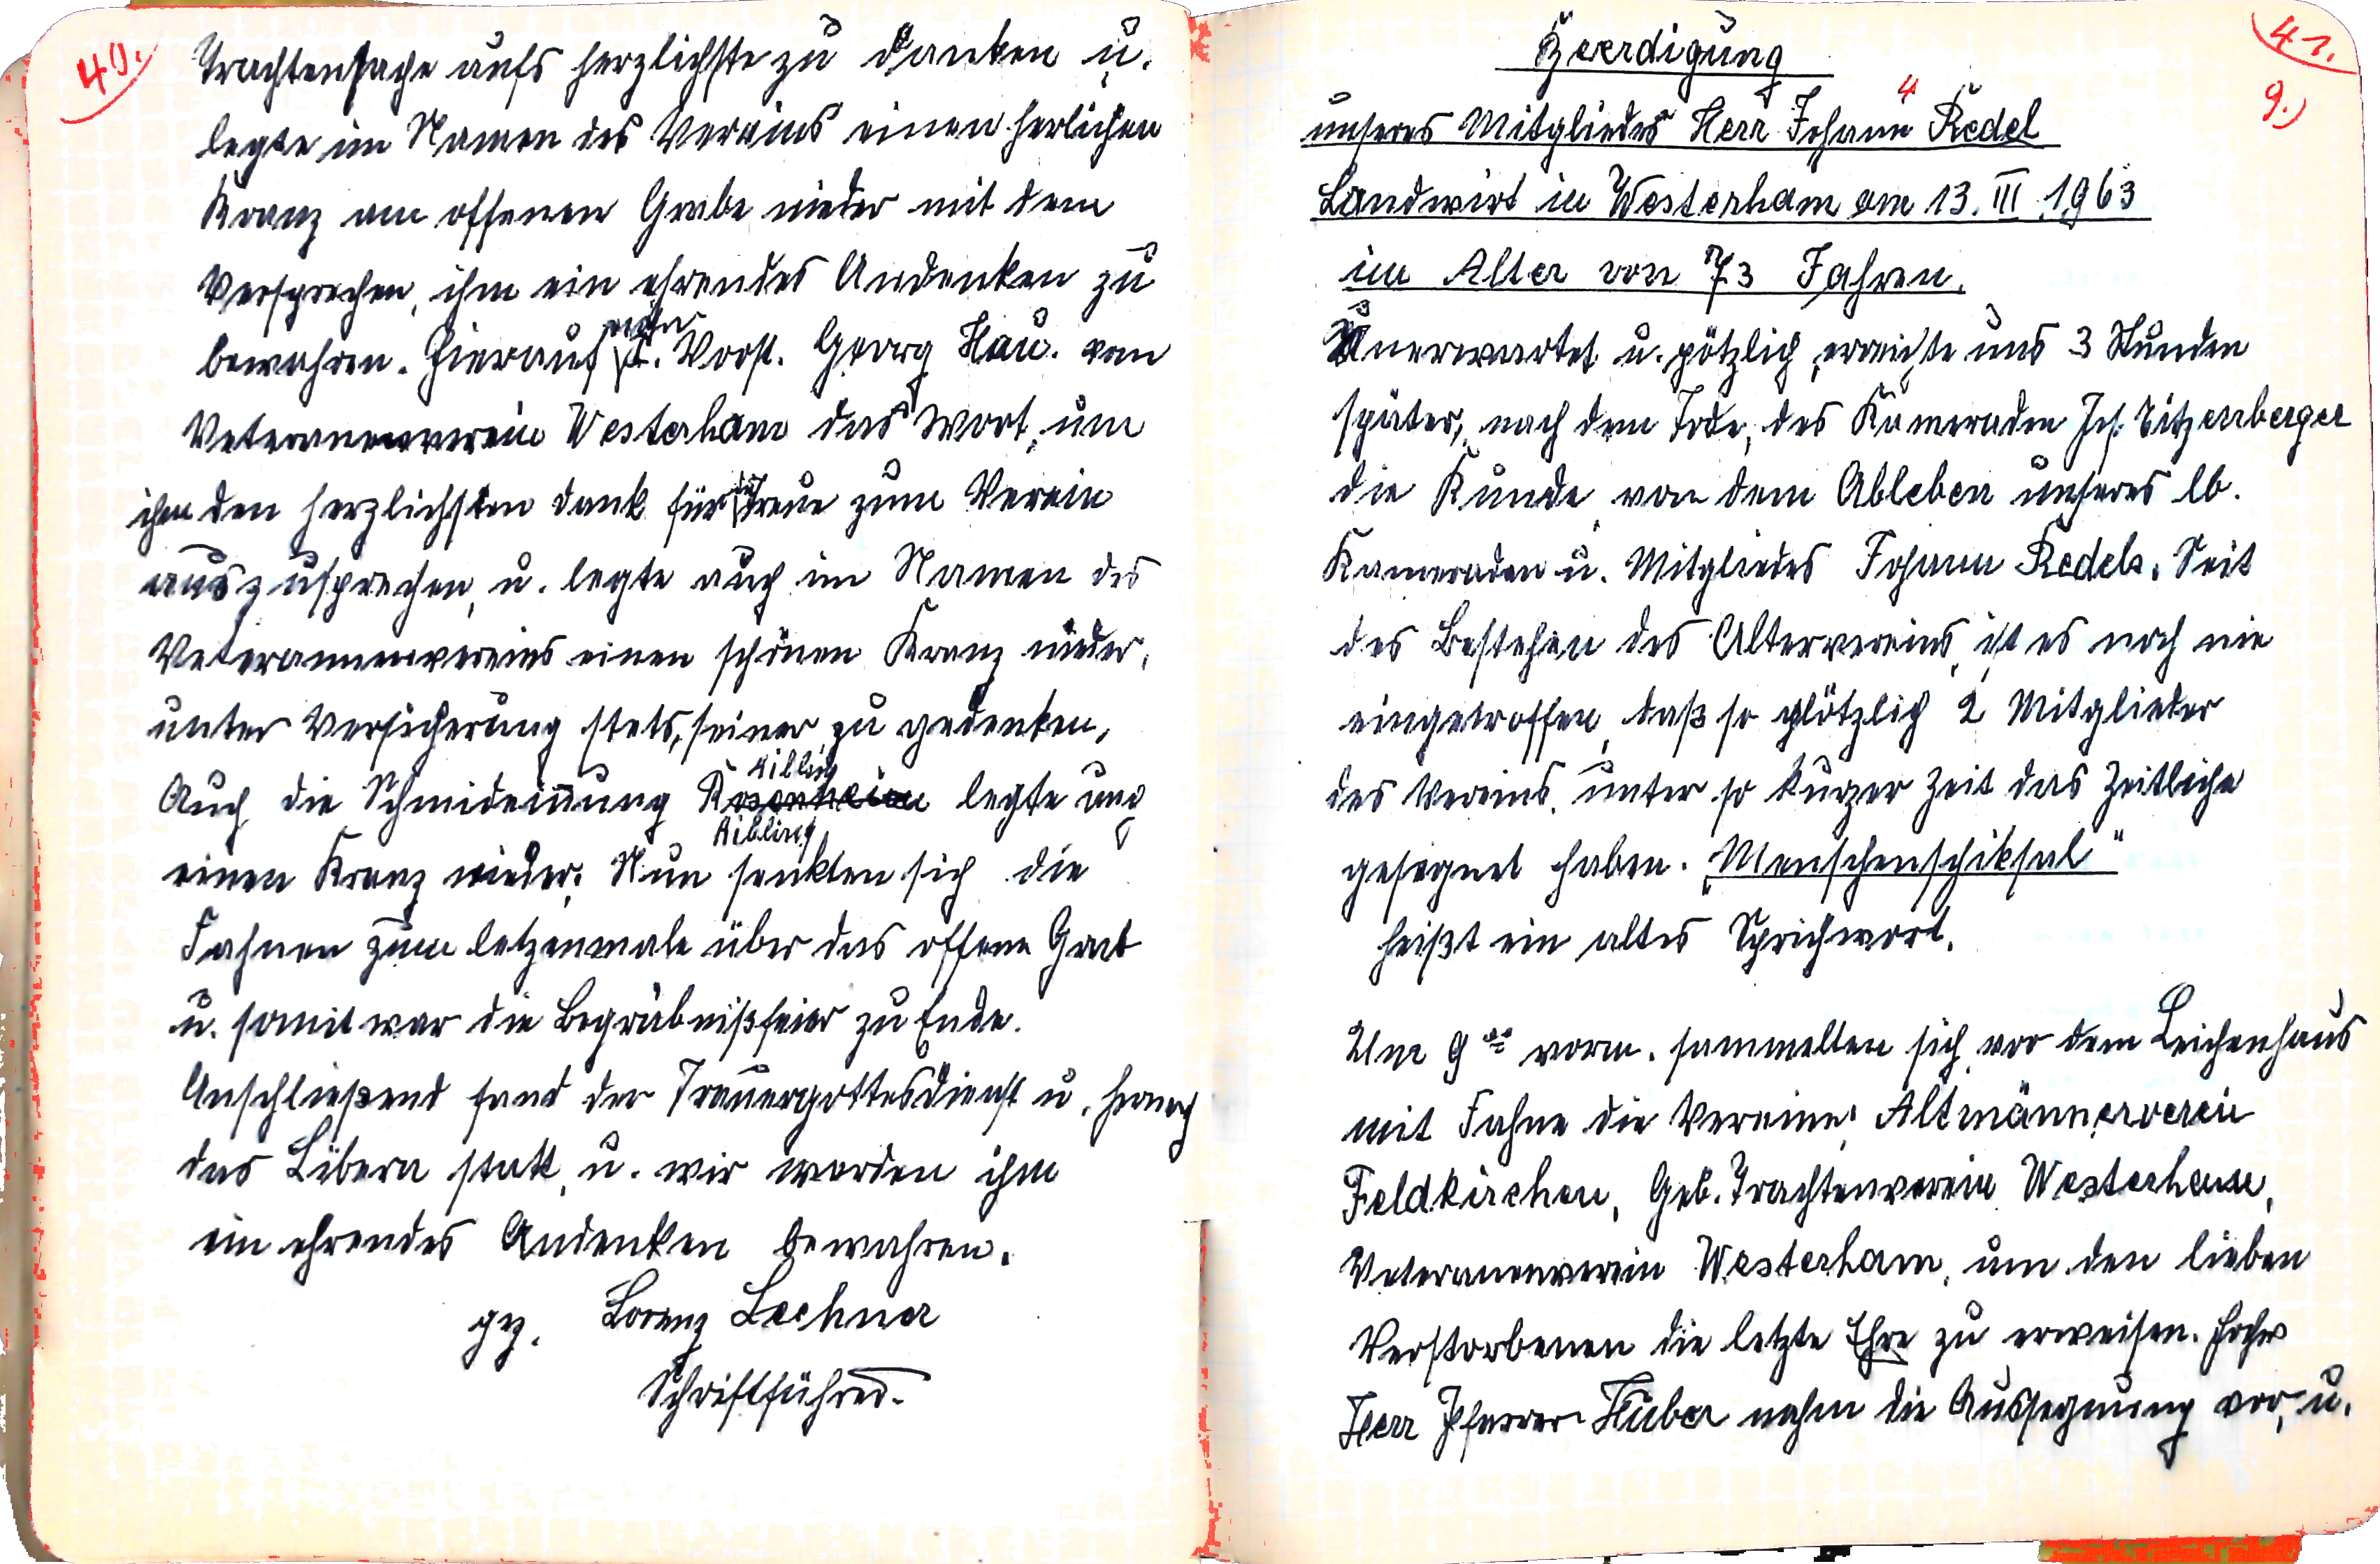 40.
Trachtensache aufs herzlichste zu danken u.
legte im Namen des Vereins einen herlichen
Kranz am offenen Grabe nieder mit dem
Versprechen, ihm ein ehrendes Andenken zu
bewahren. Hierauf nahm I. Vorst. Georg Hau. vom
Veteranenverein Westerham das Wort, um
ihm den herzlichsten Dank für die Treue zum Verein
auszusprechen, u. legte auch im Namen des
Veterannenvereins einen schönen Kranz nieder,
unter Versicherung stets, seiner zu gedenken.
Auch die Schmideinnung Rosenheim Aibling legte
Aibling
einen Kranz nieder. Nun senkten sich die
Fahnen zum letzenmale über das offene Grab
u. somit war die Begräbnißfeier zu Ende.
Anschließend fand der Trauergottesdienst u. hernach
das Libera statt, u. wir werden ihm
ein ehrendes Andenken bewahren.
gez. Lorenz Lechner
Schriftführer.
41.
9.)
Beerdigung
4
unseres Mitgliedes Herr Johann Redel
Landwirt in Westerham am 13. III 1963
im Alter von 73 Jahren.
Unerwartet u. pötzlich, erreichte uns 3 Stunden
später, nach dem Tode, des Kameraden Joh. Nitzenberger
die Kunde, von dem Ableben unseres lb.
Kameraden u. Mitgliedes Johann Redels. Seit
des Bestehen des Altervereins, ist es noch nie
eingetroffen, daß so plötzlich 2 Mitglieder
des Vereins, unter so kurzer Zeit das Zeitliche
gesegnet haben. "Menschenschiksal"
heißt ein altes Sprichwort.
Um 9 00 vorm. sammelten sich vor dem Leichenhaus
mit Fahne die Vereine: Altmännerverein
Feldkirchen, Geb. Trachtenverein Westerham,
Veteranenverein Westerham, um den lieben
Verstorbenen die letzte Ehre zu erweisen. Hochw
Herr Pfarrer Huber nahm die Aussegnung vor, u.